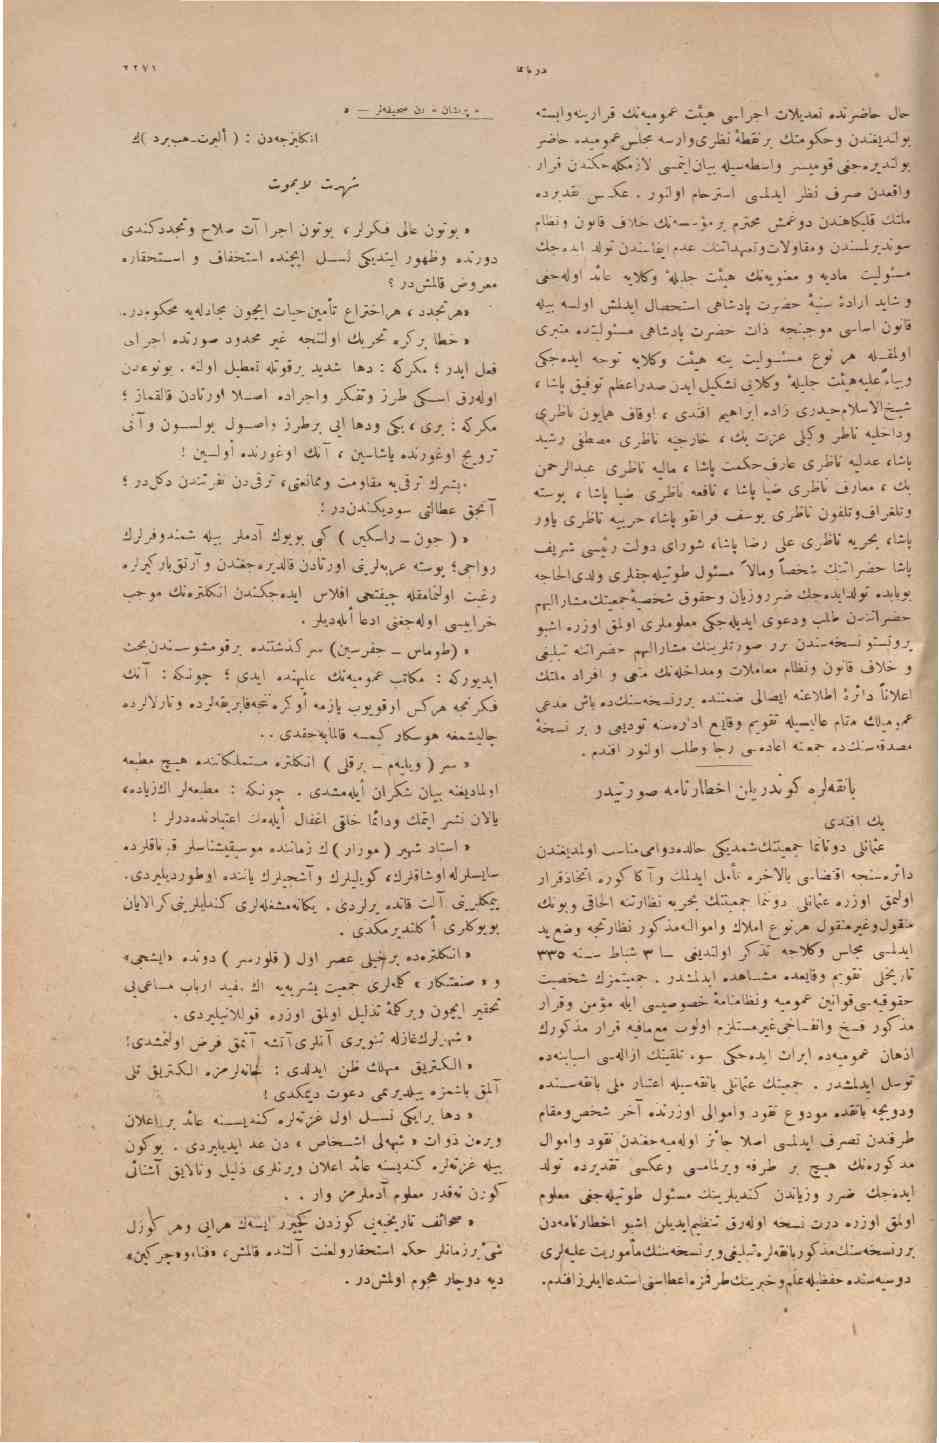 ٢٢٧١
دونانما
حال حاضرنده تعدیلات اجراسی هیئت عمومیه‌نك قرارینه‌وابسته
بولندیغندن وحكومتك برنقطهٔ نظری‌وارسه مجلس‌عمومیده حاضر
بولندیره‌جغی قومیسر واسطه‌سیله بیان‌ایتمسی لازمكله‌جكندن قرار
واقعدن صرف نظر ایدلمسی استرحام اولنور . عكس تقدیرده
ملتك قلبكاهندن دوغمش محترم برمؤسسه‌نك خلاف قانون ونظام
سوندیرلمسندن ومقاولات‌وتعهداتنك عدم ایفاسندن تولد ایده‌جك
مسئولیت مادیه و معنویه‌نك هیئت جلیلهٔ وكلایه عائد اوله‌جغی
و شاید ارادهٔ سنیهٔ حضرت پادشاهی استحصال ایدلمش اولسه بیله
قانون اساسی موجبنجه ذات حضرت پادشاهی مسئولیتدن متبری
اولمغله هر نوع مسئولیت ینه هیئت وكلایه توجه ایده‌جكی
وبناءًعلیه‌هیئت جلیلهٔ وكلایی تشكیل ایدن صدراعظم توفیق پاشا ،
شیخ‌الاسلام‌حیدری زاده ابراهیم افندی ، اوقاف همایون ناظری
وداخلیه ناظر وكیلی عزت بك ، خارجیه ناظری مصطفی رشید
پاشا، عدلیه ناظری عارف‌حكمت پاشا ، مالیه ناظری عبدالرحمن
بك ، معارف ناظری ضیا پاشا ، نافعه ناظری ضیا پاشا ، پوسته
وتلغراف‌وتلفون ناظری یوسف فرانقو پاشا، حربیه ناظری یاور
پاشا، بحریه ناظری علی رضا پاشا، شورای دولت رئیسی شریف
پاشا حضراتنك شخصاً ومالاً مسئول طوتیله‌جقلری ولدی‌الحاجه
بوبابده تولدایده‌جك ضرروزیان وحقوق شخصیهٔ جمعیتك‌مشارالیهم
حضراتندن طلب ودعوی ایدیله‌جكی معلوملری اولمق اوزره اشبو
پروتستو نسخه‌سندن برر صورتلرینك مشارالیهم حضراتنه تبلیغی
و خلاف قانون ونظام معاملات ومداخله‌نك منعی و افراد ملتك
اعلاناً دائرهٔ اطلاعنه ایصالی ضمننده بررنسخه‌سنك‌ده باش مدعی
عمومیلك مقام عالیسیله تقویم وقایع اداره‌سنه تودیعی و بر نسخهٔ
مصدقه‌سنك‌ده جمعیته اعاده‌سی رجا وطلب اولنور افندم .
بانقه‌لره كوندریلن اخطارنامه صورتیدر
بك افندی
عثمانلی دونانما جمعیتنك‌شمدیكی حالده‌دوامی‌مناسب اولمدیغندن
دائره‌سنجه اقتضاسی بالاخره تأمل ایدلمك وآكاكوره اتخاذقرار
اولنمق اوزره عثمانلی دوننما جمعیتنك بحریه نظارتنه الحاقی وبونك
منقول‌وغیرمنقول هرنوع املاك واموالنه‌مذكور نظارتجه وضع ید
ایدلمسی مجلس وكلاجه تذكر اولندیغی ٣ شباط سنه ٣٣٥
تاریخلی تقویم وقایعده مشاهده ایدلمشدر . جمعیتمزك شخصیت
حقوقیه‌سی‌قوانین عمومیه ونظامنامهٔ خصوصیسی ایله مؤمن وقرار
مذكور فسخ وانفساخی‌غیرمستلزم اولوب مع‌مافیه قرار مذكورك
اذهان عمومیه‌ده ایراث ایده‌جكی سوء تلقینك ازاله‌سی اسبابنه‌ده
توسل ایدلمشدر . جمعیتك عثمانلی بانقه‌سیله اعتبار ملی بانقه‌سنده
ودویچه بانقده مودوع نقود واموالی اوزرنده آخر شخص‌ومقام
طرفندن تصرف ایدلمسی اصلا جائز اوله‌میه‌جغندن نقود واموال
مذكوره‌نك هیچ بر طرفه ویرلمامسی وعكسی تقدیرده تولد
ایده‌جك ضرر وزیاندن كندیلرینك مسئول طوتیله‌جغی معلوم
اولمق اوزره درت نسخه اوله‌رق تنظیم‌ایدیلن اشبو اخطارنامه‌دن
بررنسخه‌سنك‌مذكوربانقه‌لره‌تبلیغی‌وبرنسخه‌سنك‌مأموریت علیه‌لری
دوسیه‌سنده حفظیله‌علم‌وخبرینك‌طرفمزه‌اعطاسنی‌استدعاایلرزافندم.
« پریشان » دن صحیفه‌لر —
انكلیزجه‌دن : ( ألبرت-هب‌برد )ك
شهرت لایموت
« بوتون عالی فكرلر ، بوتون اجرا آت صلاح وتجددكندی
دورنده وظهور ایتدیكی نسل ایچنده استخفاف و استحقاره
معروض قالمش‌در ؟
«هرتجدد ، هراختراع تأمین‌حیات ایچون مجادله‌یه محكومدر.
« خطا بركره تحریك اولننجه غیر محدود صورتده اجرای
فعل ایدر ؛ مكركه : دها شدید برقوتله تعطیل اولنه . بونوعدن
اوله‌رق اسكی طرز وتفكر واجراده اصلا اورتادن قالقماز ؛
مكركه : بری ، یكی ودها ایی برطرز واصول بولسون وآنی
ترویج اوغورنده یاشاسین ، آنك اوغورنده أولسین !
«بشرك ترقی‌یه مقاومت وممانعتی، ترقی‌دن نفرتندن دكل‌در ؛
آنجق عطالتی سودیكندن‌در !
« ( جون – راسكین ) كبی بویوك آدملر بیله شمندوفرلرك
رواجی؛ پوسته عربه‌لرینی اورتادن قالدیره‌جغندن وآرتق‌باركیرلره
رغبت اولنمامقله چیفتجی افلاس ایده‌جكندن انكلتره‌نك موجب
خرابیسی اوله‌جغنی ادعا ایله‌دیلر .
« (طوماس – جفرسین) سركذشتنده برقومشوسندن‌بحث
ایدیوركه : مكاتب عمومیه‌نك علیهنده ایدی ؛ چونكه : آنك
فكرنجه هركس ارقویوب یازمه أوكره‌نجه‌فابریقه‌لرده وتارلالرده
چالیشمغه هوسكار كیمسه قالمایه‌جقدی . .
« سر ( ویلیه‌م – برقلی ) انكلتره مستملكاتنده هیچ مطبعه
اولمادیغنه بیان شكران أیله‌مشدی . چونكه : مطبعه‌لر اك‌زیاده،
یالان نشر ایتمك ودائما خلقی اغفال أیله‌مك اعتیادنده‌درلر !
« استاد شهیر ( موزار ) ك زماننده موسیقیشناسلر قوناقلرده
سایسلرله اوشاقلرك، كویلیلرك وآشجیلرك یاننده اوطوردیلیردی.
ییمكلرینی آلت قاتده یرلردی. یكانه‌مشغله‌لری كندیلرینی‌كرالایان
بویوكلری أكلندیرمكدی .
« انكلتره‌ده برنجی عصر اول ( قلورسر ) دونده «ایشجی»
و « صنعتكار » كله‌لری جمعیت بشریه‌یه اك مفید ارباب مساعی‌یی
تحقیر ایچون وبركلهٔ تذلیل اولمق اوزره قوللانیلیردی .
« شهرلرك‌غازله تنویری آنلری‌آتشه آتمق فرض اولنمشدی!
« الكتریق مهلك ظن ایدلدی : خانه‌لرمزه الكتریق تلی
آلمق باشمزه ییلدیرمی دعوت دیمكدی !
« دها برایكی نسل اول غزته‌لره كندیسنه عائد براعلان
ویرەن ذوات « شبهه‌لی اشخاص » دن عد ایدیلیردی . بوكون
بیله غزته‌لره كندیسنه عائد اعلان ویرنلری ذلیل ونالایق آشنائی
كورن نه‌قدر معلوم آدملرمز وار . .
« صحائف تاریخیه‌یی كوزدن كچیرر ایسه‌ك هرایی وهر كوزل
شی‌ٔ برزمانلر حكم استحقارولعنت آلتنده قالمش، «فنا»و«چركین»
دیه دوچار هجوم اولمش‌در .